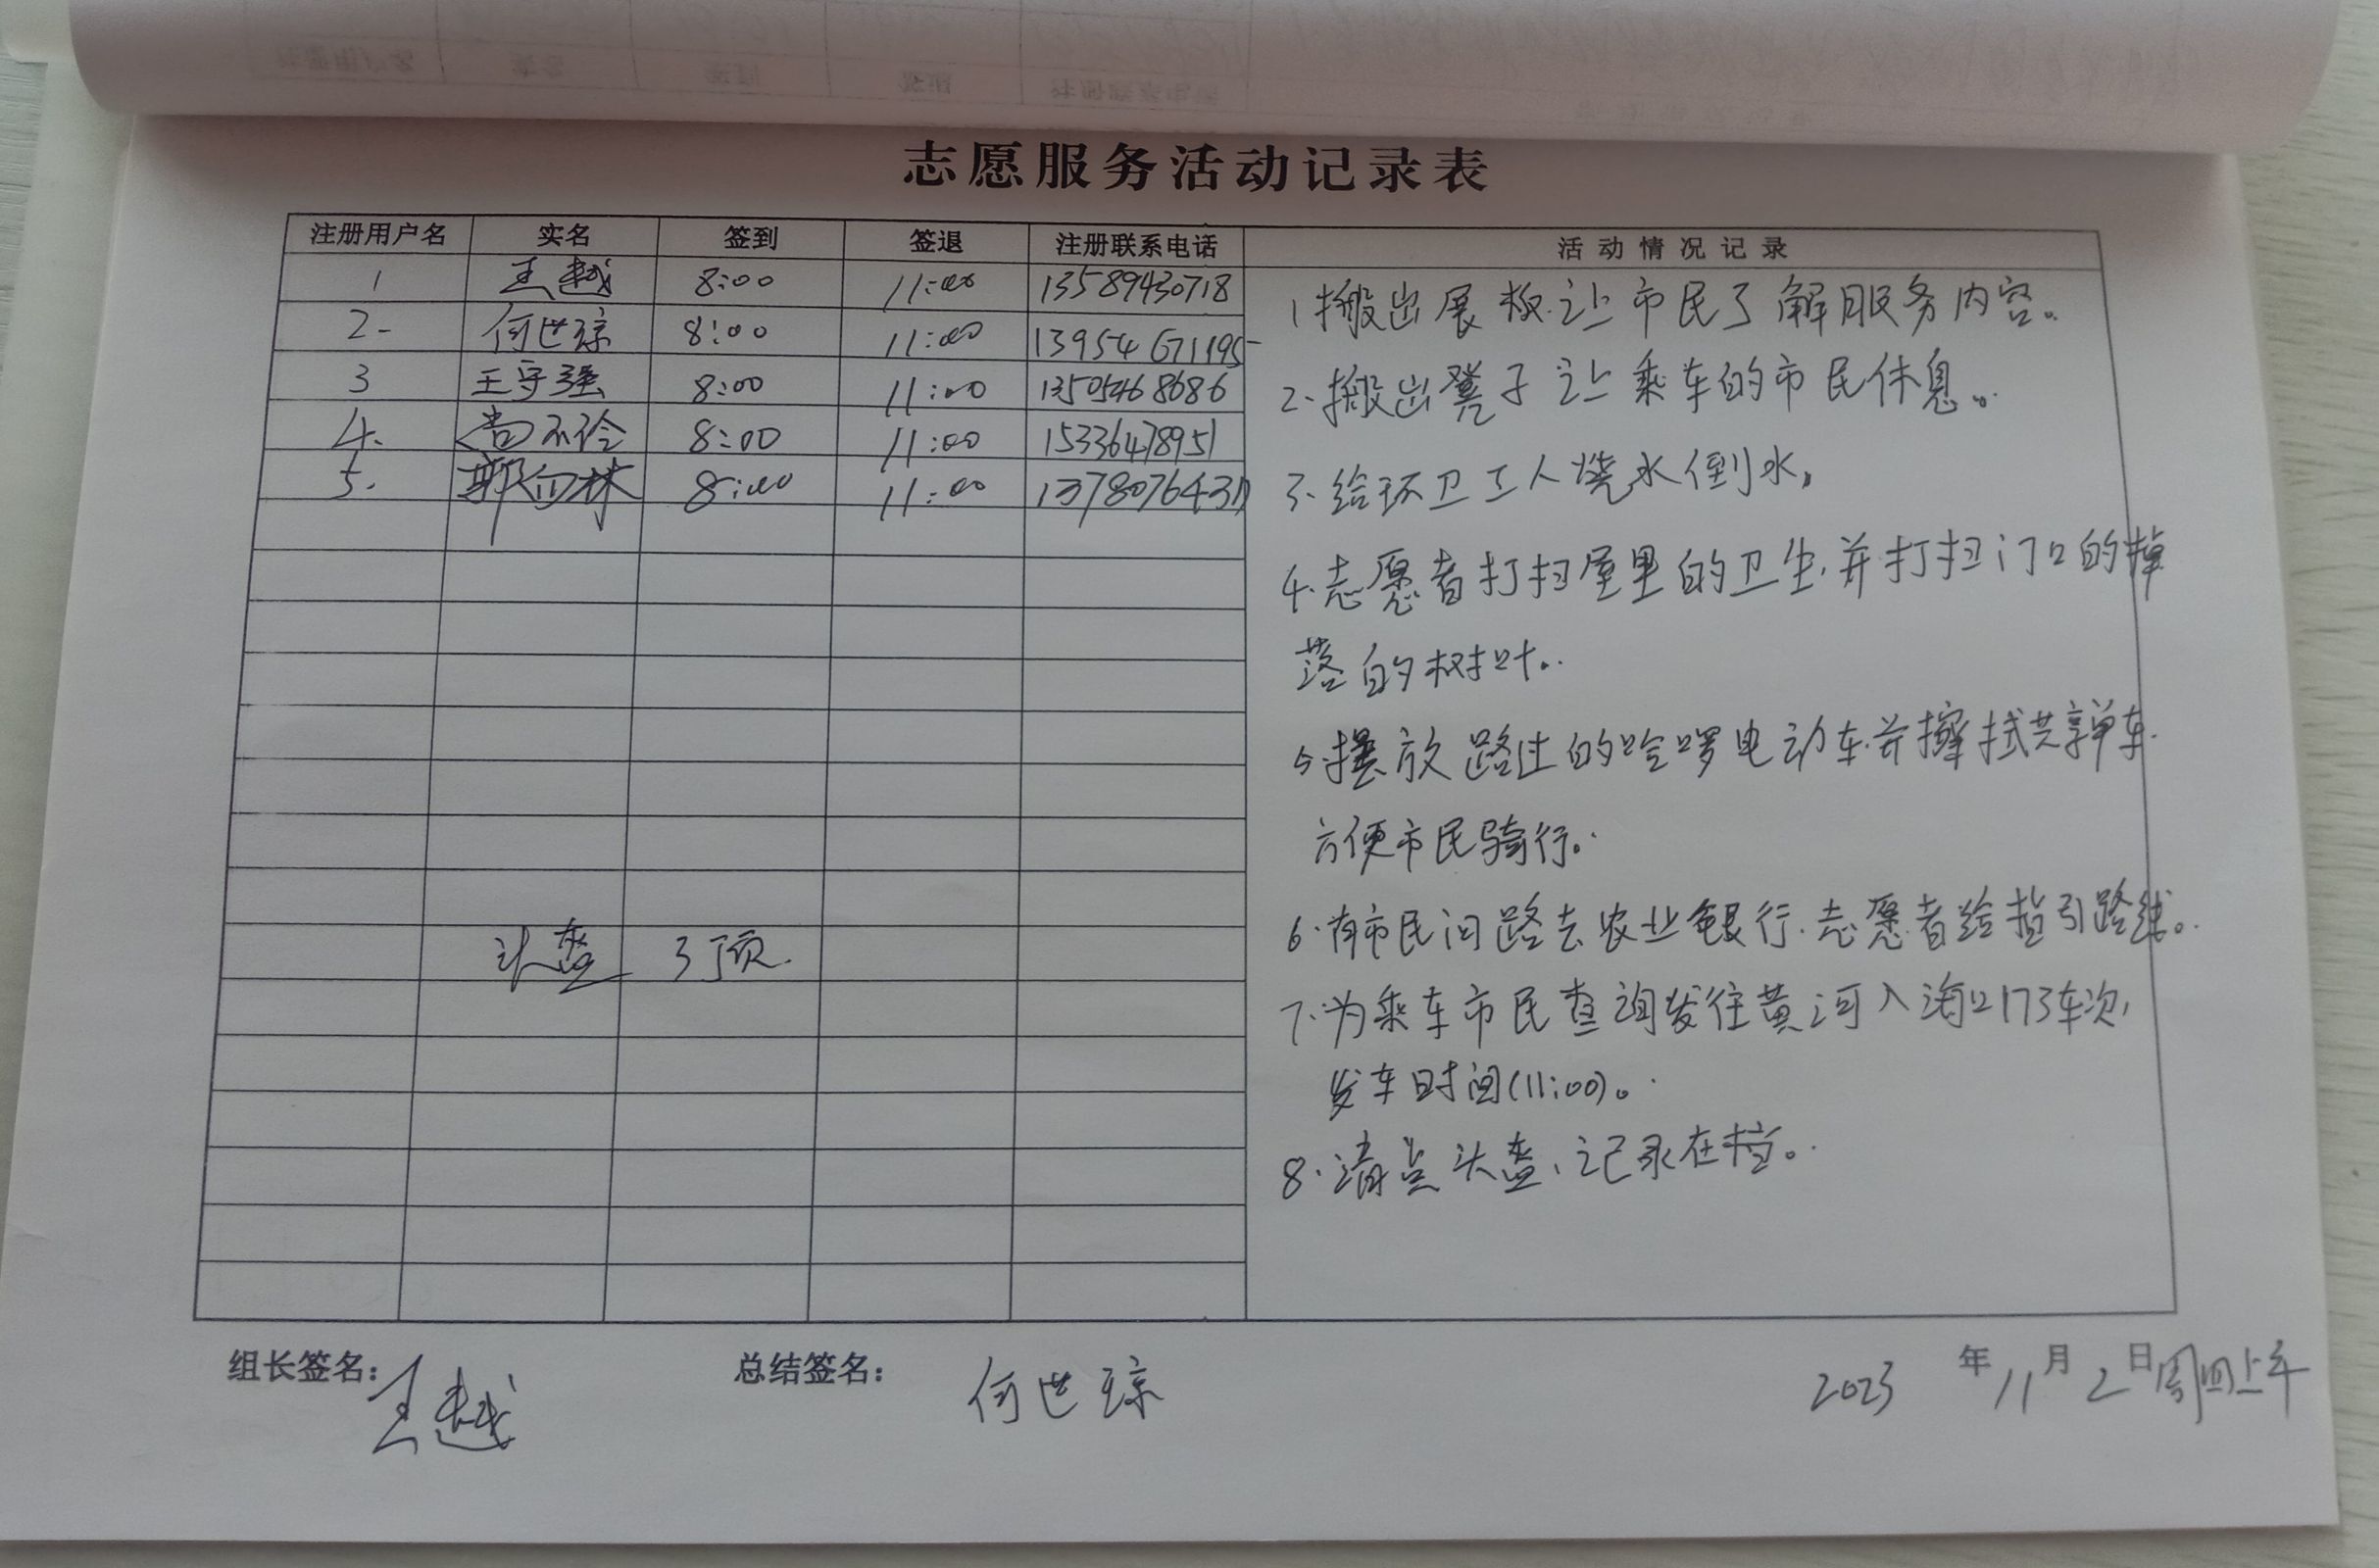 志愿服务活动记录表
注册用户名 实名 签到 签退 注册联系电话 活动情况记录
1 王越 8:00 11:00 13589430718
2- 何世琼 8:00 11:00 13954671195
3 王守强 8:00 11:00 13505468686
4. 8:00 11:00 15336478951
5. 8:00 11:00
头盔 3顶.
1搬出展板.让市民了解服务内容。
2.搬出凳子让乘车的市民休息。
3.给环卫工人烧水倒水,
4.志愿者打扫屋里的卫生,并打扫门口的掉
落的树叶。
5.摆放路过的哈啰电动车.并擦拭共享单车.
方便市民骑行。
6.有市民问路去农业银行.志愿者给指引路线。
7.为乘车市民查询发往黄河入海口173车次,
发车时间(11:00)。
8.清点头盔,记录在档。
组长签名: 王越 总结签名: 何世琼 2023 年 11 月 2 日 周四上午